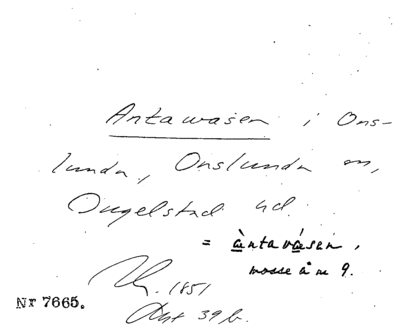 Antawasen i Ons-
lunda, Onslunda sn,
Ingelstad hd.
= àntavásen,
mosse å n 9.
1851
Nr 7665.
Akt 39 b.